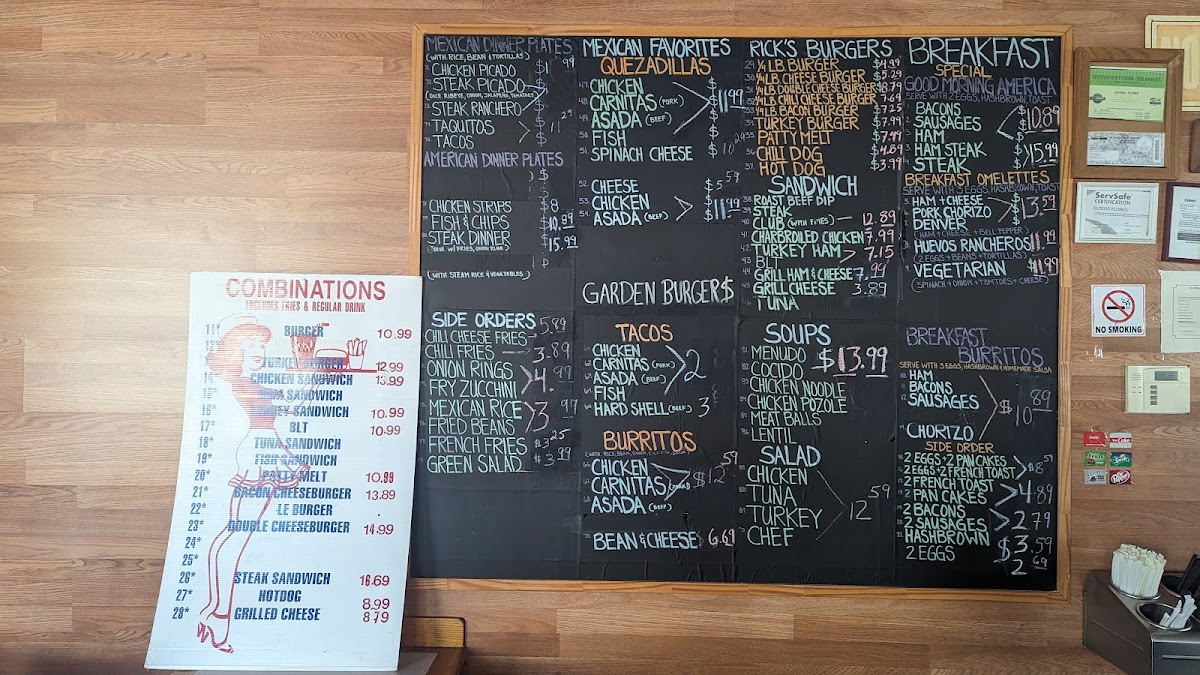 COMBINATIONS
INCLUDES FRIES & REGULAR DRINK
11* BURGER 10.99
12*
TURKEY BURGER 12.99
14* CHICKEN SANDWICH 13.99
15* SANDWICH
16* SANDWICH 10.99
17* BLT 10.99
18* TUNA SANDWICH
19* FISH SANDWICH
20* PATTY MELT 10.99
21* BACON CHEESEBURGER 13.89
22* LE BURGER
23* DOUBLE CHEESEBURGER 14.99
24*
25*
26* STEAK SANDWICH 16.69
27* HOTDOG 8.99
28* GRILLED CHEESE 8.79
MEXICAN DINNER PLATES
(WITH RICE, BEAN & TORTILLAS)
CHICKEN PICADO
STEAK PICADO
(DICE RIBEYE, ONION, JALAPENO, TOMATOES)
STEAK RANCHERO
TAQUITOS
TACOS
AMERICAN DINNER PLATES
CHICKEN STRIPS $8
FISH & CHIPS $10.89
STEAK DINNER $15.99
(SERVE W/ FRIES, ONION RING)
(WITH STEAM RICE & VEGETABLES)
SIDE ORDERS
CHILI CHEESE FRIES 5.89
CHILI FRIES 3.89
ONION RINGS
FRY ZUCCHINI
MEXICAN RICE
FRIED BEANS
FRENCH FRIES $3.25
GREEN SALAD $3.99
MEXICAN FAVORITES
QUEZADILLAS
CHICKEN
CARNITAS (PORK) 11.99
ASADA (BEEF)
FISH
SPINACH CHEESE
CHEESE $5.59
CHICKEN
ASADA (BEEF) $11.99
GARDEN BURGER$
TACOS
CHICKEN
CARNITAS (PORK)
ASADA (BEEF) 2
FISH
HARD SHELL (BEEF) 3
BURRITOS
CHICKEN
CARNITAS (PORK) $12.59
ASADA (BEEF)
BEAN & CHEESE $6.69
RICK'S BURGERS
¼ LB BURGER $4.99
¼ LB CHEESE BURGER $5.29
¼ LB DOUBLE CHEESE BURGER $8.79
¼ LB CHILI CHEESE BURGER 7.69
¼ LB BACON BURGER $7.25
TURKEY BURGER 7.99
PATTY MELT $7.99
CHILI DOG $4.89
HOT DOG $3.99
SANDWICH
ROAST BEEF DIP
STEAK
CLUB (WITH FRIES) 12.89
CHARBROILED CHICKEN 7.99
TURKEY HAM 7.15
BLT
GRILL HAM & CHEESE 7.99
GRILL CHEESE 3.89
TUNA
SOUPS
MENUDO $13.99
COCIDO
CHICKEN NOODLE
CHICKEN POZOLE
MEAT BALLS
LENTIL
SALAD
CHICKEN
TUNA 12.59
TURKEY
CHEF
BREAKFAST
SPECIAL
GOOD MORNING AMERICA
SERVE WITH 2 EGGS, HASHBROWN, TOAST
BACONS
SAUSAGES $10.89
HAM
HAM STEAK
STEAK $15.99
BREAKFAST OMELETTES
SERVE WITH 3 EGGS, HASHBROWN, TOAST
HAM & CHEESE
PORK CHORIZO $13.59
DENVER
(HAM & CHEESE & BELL PEPPER)
HUEVOS RANCHEROS 11.99
(2 EGGS & BEANS & TORTILLAS)
VEGETARIAN $11.99
(SPINACH & ONION & TOMATOES & CHEESE)
BREAKFAST
BURRITOS
SERVE WITH 3 EGGS, HASHBROWN & HOMEMADE SALSA
HAM
BACONS
SAUSAGES $10.89
CHORIZO
SIDE ORDER
2 EGGS & 2 PANCAKES
2 EGGS & 2 FRENCH TOAST
2 FRENCH TOAST
2 PAN CAKES 4.89
2 BACONS
2 SAUSAGES 2.79
HASHBROWN $3.59
2 EGGS 2.69
ServSafe
CERTIFICATION
NO SMOKING